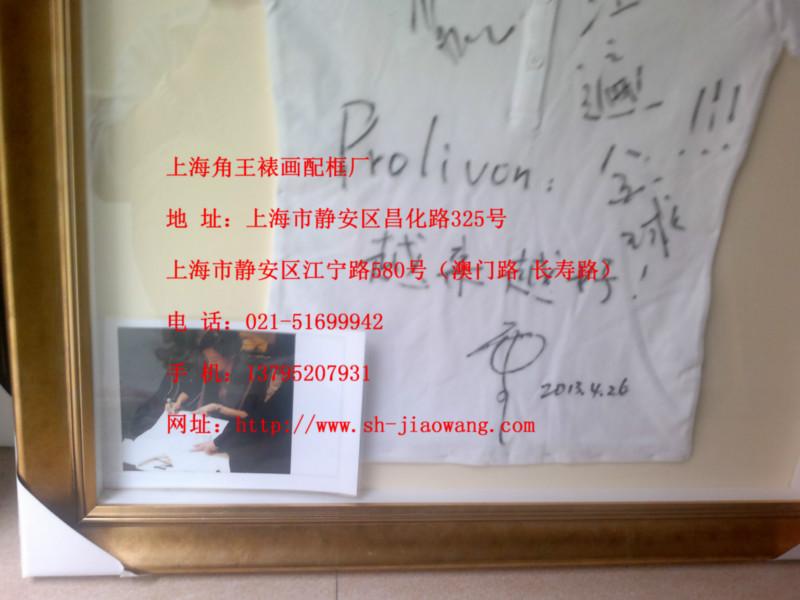 上海角王裱画配框厂
地 址：上海市静安区昌化路325号
上海市静安区江宁路580号（澳门路 长寿路）
电 话：021-51699942
手 机：13795207931
网址：http://www.sh-jiaowang.com
Prolivon:
越来越好!
2013.4.26